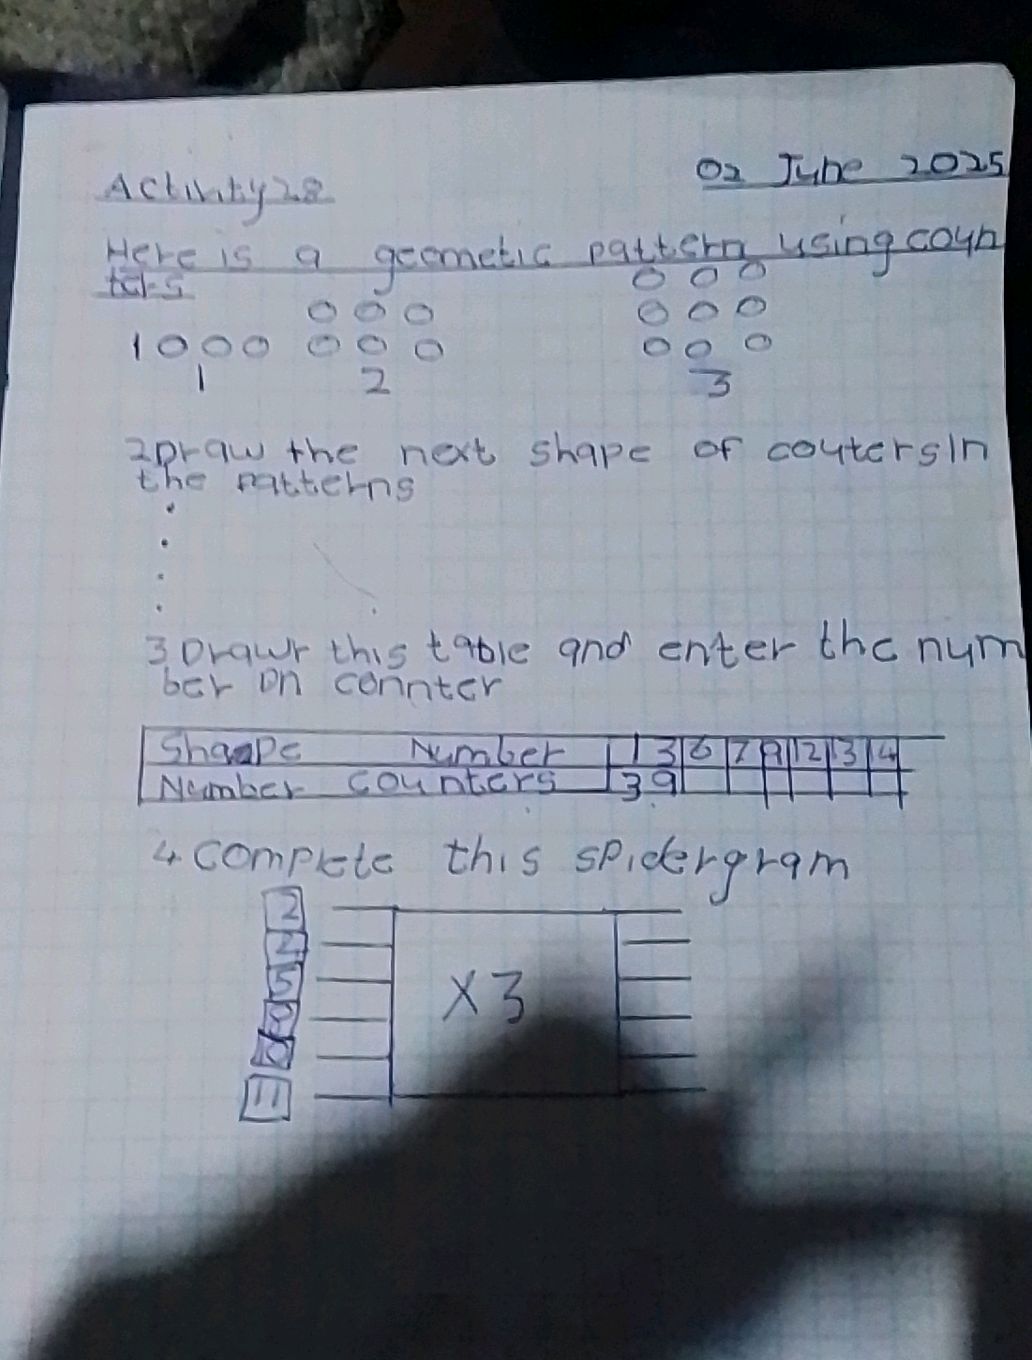 02 June 2025
Activity 28
Here is a geometic pattern using coun
ters
1
1 2 3
2 Draw the next shape of couters In
the patterns
3 Drawr this table and enter the num
ber on connter
Shaape Number 1 3 6 7 9 12 13 14
Number counters 3 9
4 Complete this spidergram
2
5
X3
11